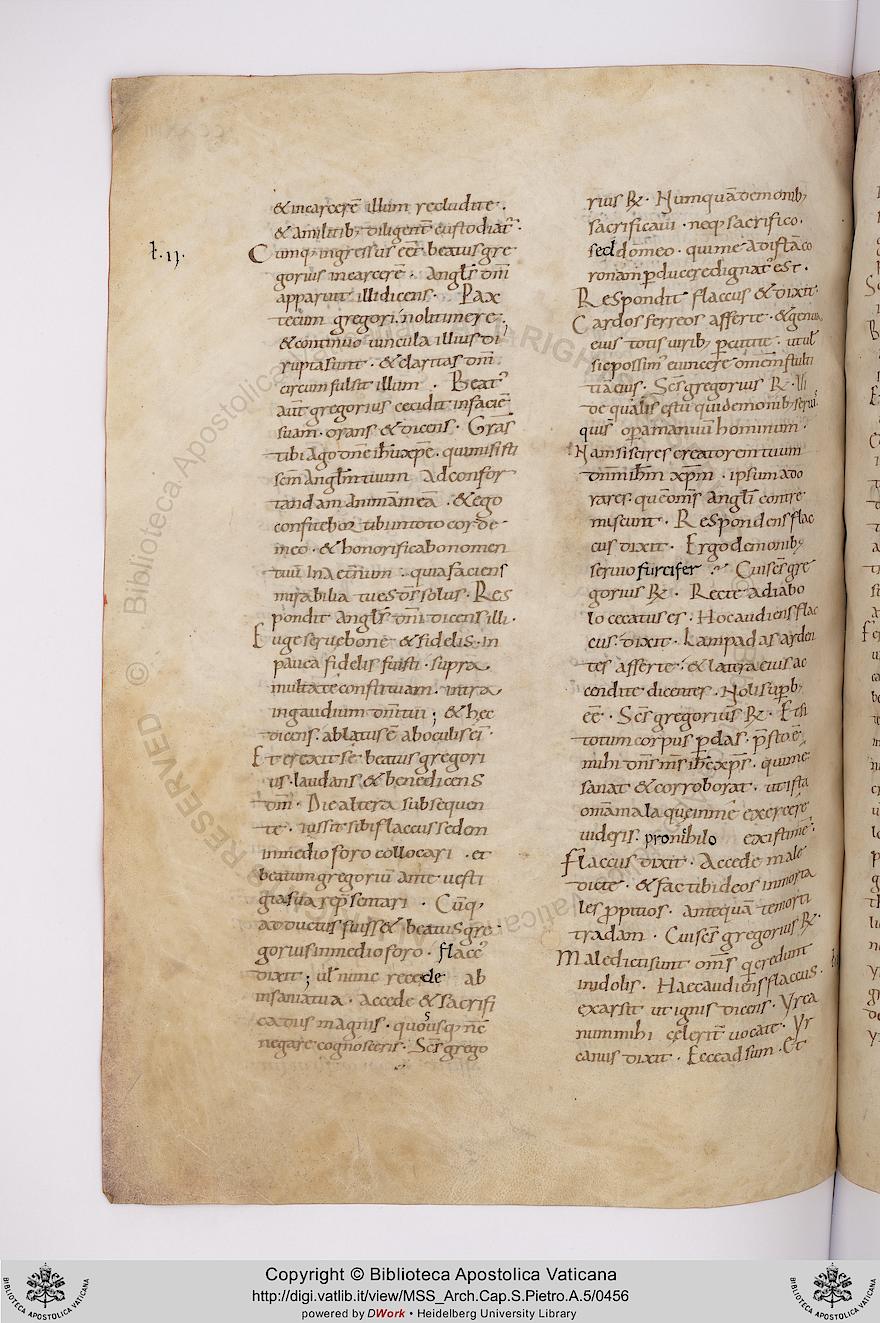 ł. ıȷ.
& incarcerē illum recludite.
& amilitib; diligent̄ custodiat᷑.
Cumq; ingressus eēt beatus gre
gorius incarcerē. Angl̄s dn̄i
apparuit illi dicens. Pax
tecum gregori, noli timere.
& continuo uincula illius di
ruptasunt. & claritas dn̄i
circumfulsit illum. Beat᷑
aut̄ gregorius cecidit infaciē
suam. orans & dicens. Gr̄as
tibi ago dn̄e ih̄u xp̄e. quimisisti
sc̄m angl̄m tuum adconfor
tandam animam meā. & ego
confitebor tibi intoto corde
meo. & honorificabo nomen
tuū In aet̄num. quia faciens
mirabilia tu es d̄s solus. Res
pondit Angl̄s dn̄i dicens illi.
Euge serue bone & fidelis. in
pauca fidelis fuisti. supra
multa te constituam. intra
ingaudium dn̄i tui; & hec
dicens. ablatus ē aboculis ei᷑.
Et erexit se beatus gregori
us. laudans & benedicens
dn̄m. Die altera subsequen
te. iussit sibi flaccus sedem
inmedio foro collocari. et
beatum gregoriū ante uesti
gia sua rep̄sentari. Cūq;
adductus fuiss& beatus gre
gorius inmedio foro. flacc᷑
dixit; uł nunc recede ab
insania tua. Accede & sacrifi
ca diis magnis. quousq; nē
negare cognosceris. Sc̄s grego
rius R̄. Numquā demonib;
sacrificaui. neq; sacrifico.
sed dō meo. qui me adistā co
ronam p̄ducere dignat᷑ est.
Respondit flaccus & dixit.
Cardos ferreos afferte. & genua
eius totis uirib; p̄cutite. ut uł
sic possim᷑ euincere omēm stulti
tiā eius. Sc̄s gregorius R̄. Vi
de qualis es tu qui demonib; serui
quiˢ opera manuū hominum.
Nam si scires creatorem tuum
dn̄m ih̄m xp̄m. ipsum ado
rares. quē om̄s angl̄i contre
miscunt. Respondens flac
cus dixit. Ergo demonib;
seruo furcifer. Cui sc̄s gre
gorius R̄. Recte adiabo
lo cecatus es. Hoc audiens flac
cus. dixit. Lampadas arden
tes afferte. & latera eius ac
cendite dicentes. Noli sup̄b᷑
eē. Sc̄s gregorius R̄. Et si
totum corpus p̄das. p̄sto ē
mihi dn̄s m̄s ih̄c xp̄s. qui me
sanat & corroborat. ut ista
omā mala que in me exercere
uideris. pro nihilo existimē.
Flaccus dixit. Accede male
dicte. & fac tibi deos inmorta
les p̄pitios. antequā te morti
tradam. Cui sc̄s gregorius R̄.
Maledicti sunt om̄s q̄ credunt
inidolis. Haec audiens flaccus.
exarsit ut ignis dicens. Yrca
num mihi celerit̄ uocate. Yr
canus dixit. Ecce adsum. Et
Copyright © Biblioteca Apostolica Vaticana
http://digi.vatlib.it/view/MSS_Arch.Cap.S.Pietro.A.5/0456
powered by DWork • Heidelberg University Library